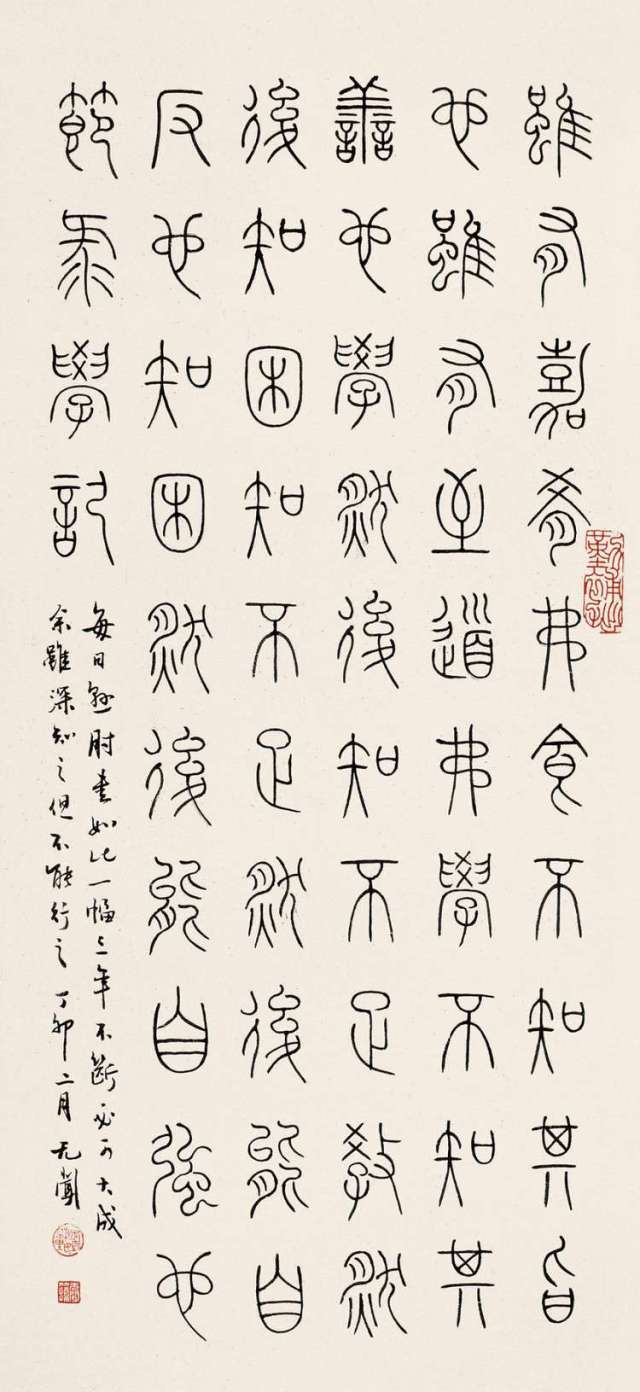 雖有嘉肴弗食不知其旨
也雖有至道弗學不知其
善也學然後知不足教然
後知困知不足然後能自
反也知困然後能自強也
節彔學記
每日懸肘書如此一幅三年不斷必可大成
余雖深知之但不能行之丁卯二月